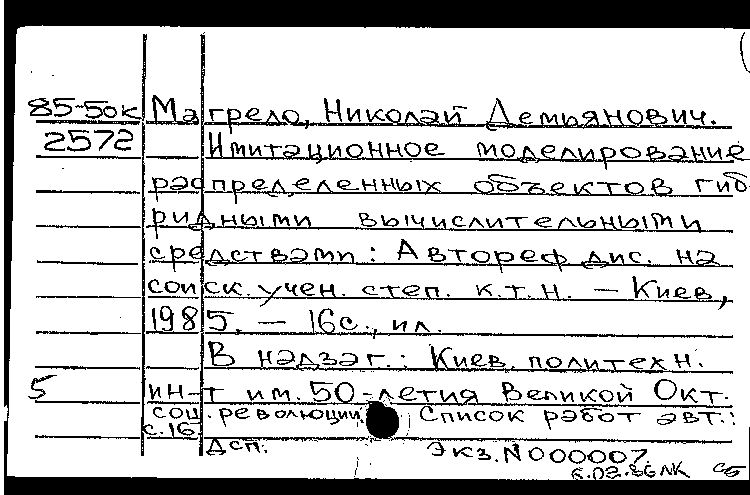 85-50к Магрело, Николай Демьянович.
2572 Имитационное моделирование
распределенных объектов гиб
ридными вычислительными
средствами: Автореф дис. на
соиск. учен. степ. к.т.н. — Киев,
1985. — 16с., ил.
В надзаг.: Киев. политехн.
5 ин-т им. 50-летия Великой Окт.
соц. революции. Список работ авт.:
с.16
Дсп. Экз. N000007.
6.02.86